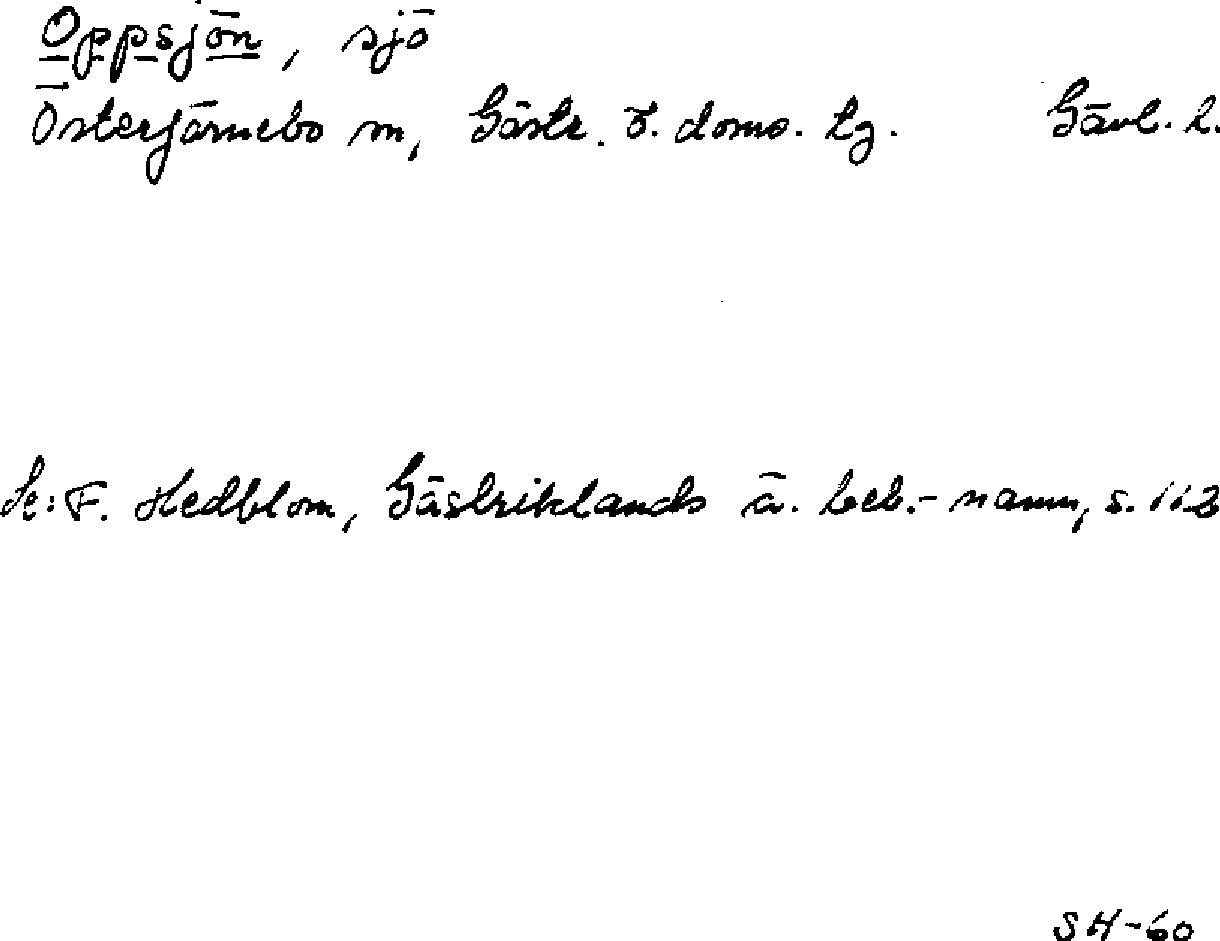 Oppsjön, sjö
Österfärnebo sn, Gästr. ö. doms. tg. Gävl. l.
Se: F. Hedblom, Gästriklands ä. beb.-namn, s. 113
SH-60